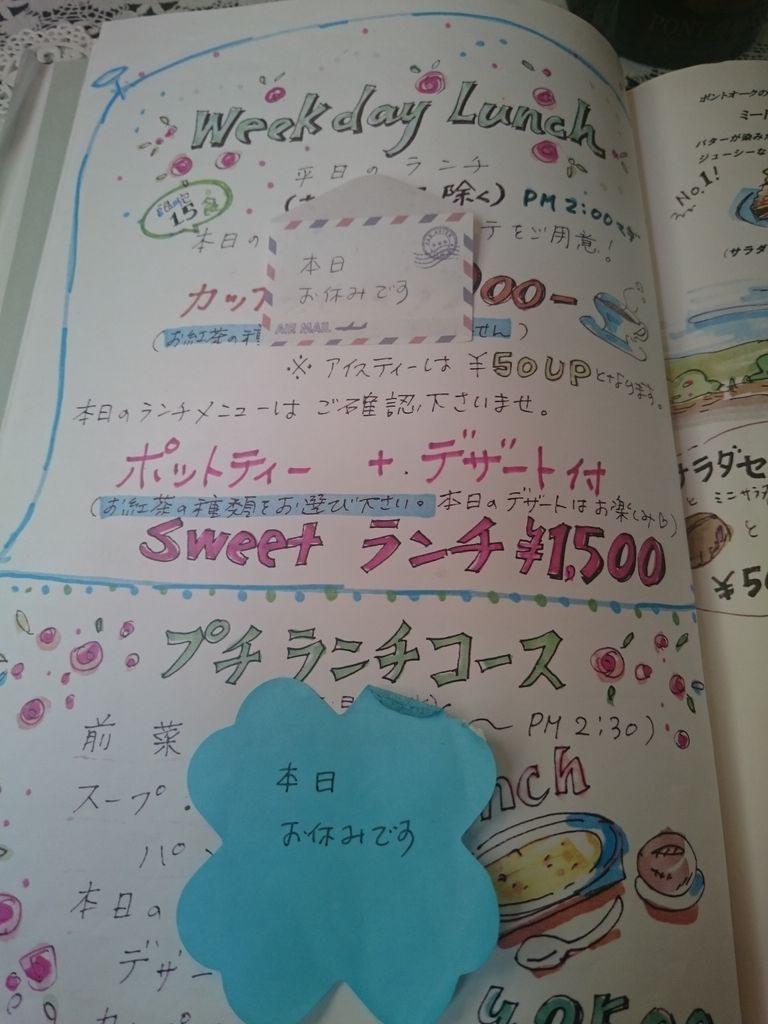 Weekday Lunch
平日のランチ
除く) PM 2:00まで
限定 15食
本日の
テをご用意!
本日
お休みです
AIR MAIL
カップ
00-
(お紅茶の種
せん)
※ アイスティーは ¥50UPとなります。
本日のランチメニューは ご確認下さいませ。
ポットティー + デザート付
(お紅茶の種類をお選び下さい。本日のデザートはお楽しみ♪)
Sweet ランチ ¥1,500
プチランチコース
前菜
〜 PM 2:30)
スープ・
nch
パン
本日の
デザー
本日
お休みです
ポントオークの
ミート
バターが染み
ジューシーな
No.1!
(サラダ
サラダセ
と ミニサラダ
と
¥50